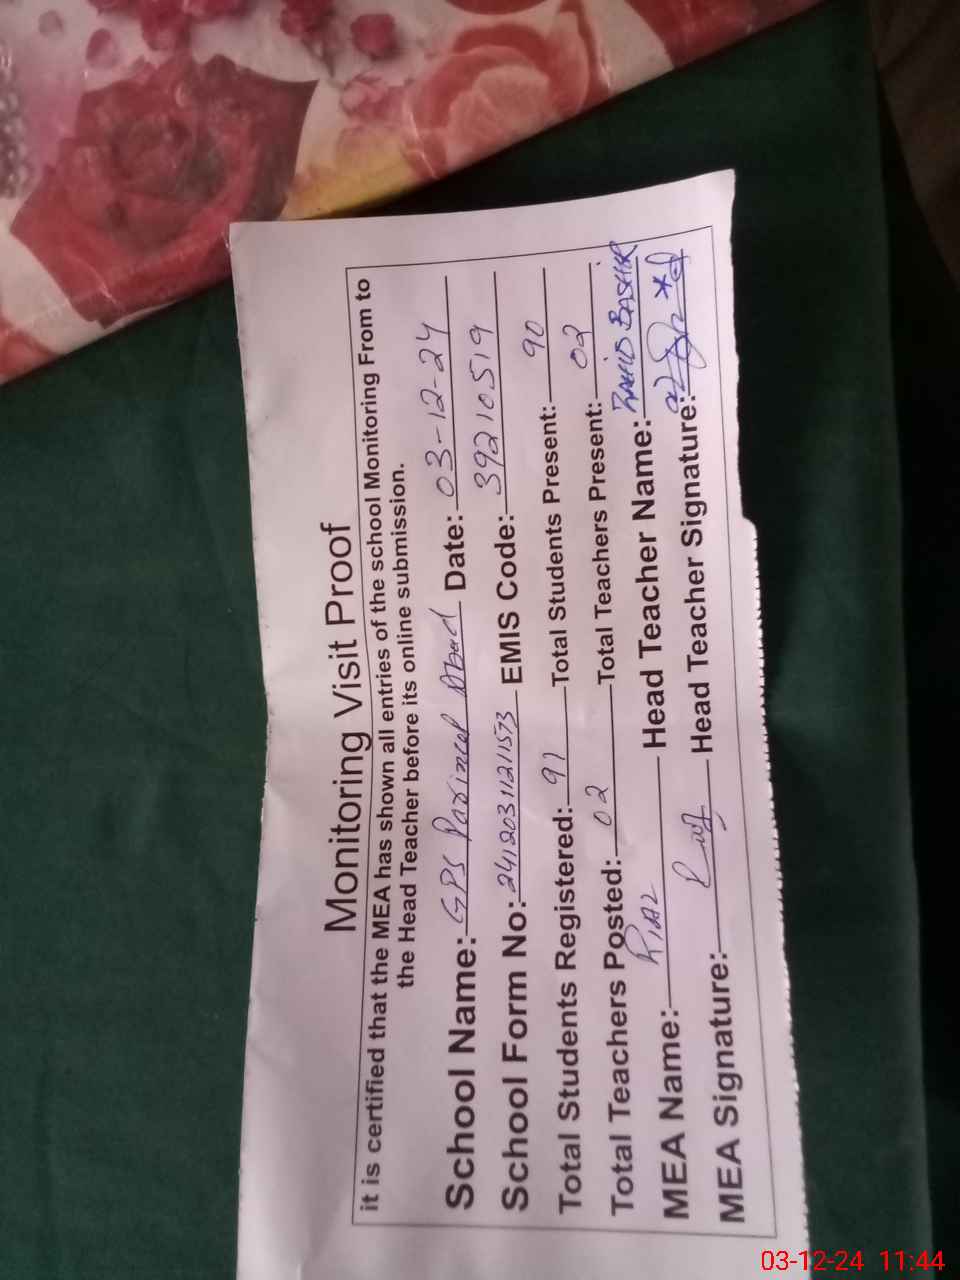 Monitoring Visit Proof
it is certified that the MEA has shown all entries of the school Monitoring From to
the Head Teacher before its online submission.
School Name: GPS Abad Date: 03-12-24
School Form No: 241203112111573 EMIS Code: 39210519
Total Students Registered: 91 Total Students Present: 90
Total Teachers Posted: 02 Total Teachers Present: 02
MEA Name: RIAZ Head Teacher Name: ZAHID BASHIR
MEA Signature: Head Teacher Signature:
03-12-24 11:44